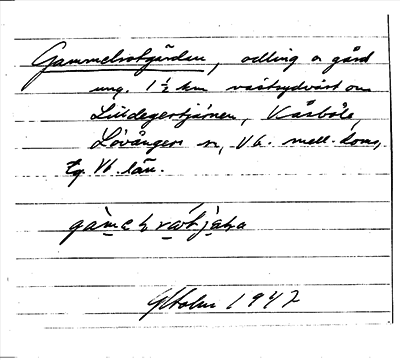 Gammelrotgärdan, odling o gård
ung. 1½ km västsydväst om
Lill degertjärnen, Kåsböle,
Lövångers sn, Vb. mell. doms.
tg. Vb. län.
G Holm 1947